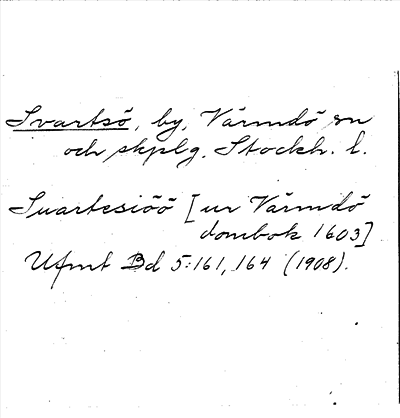 Svartsö, by, Värmdö sn
och skplg. Stockh. l.
Suartesiöö [ur Värmdö
dombok 1603]
Ufmt Bd 5:161, 164 (1908).